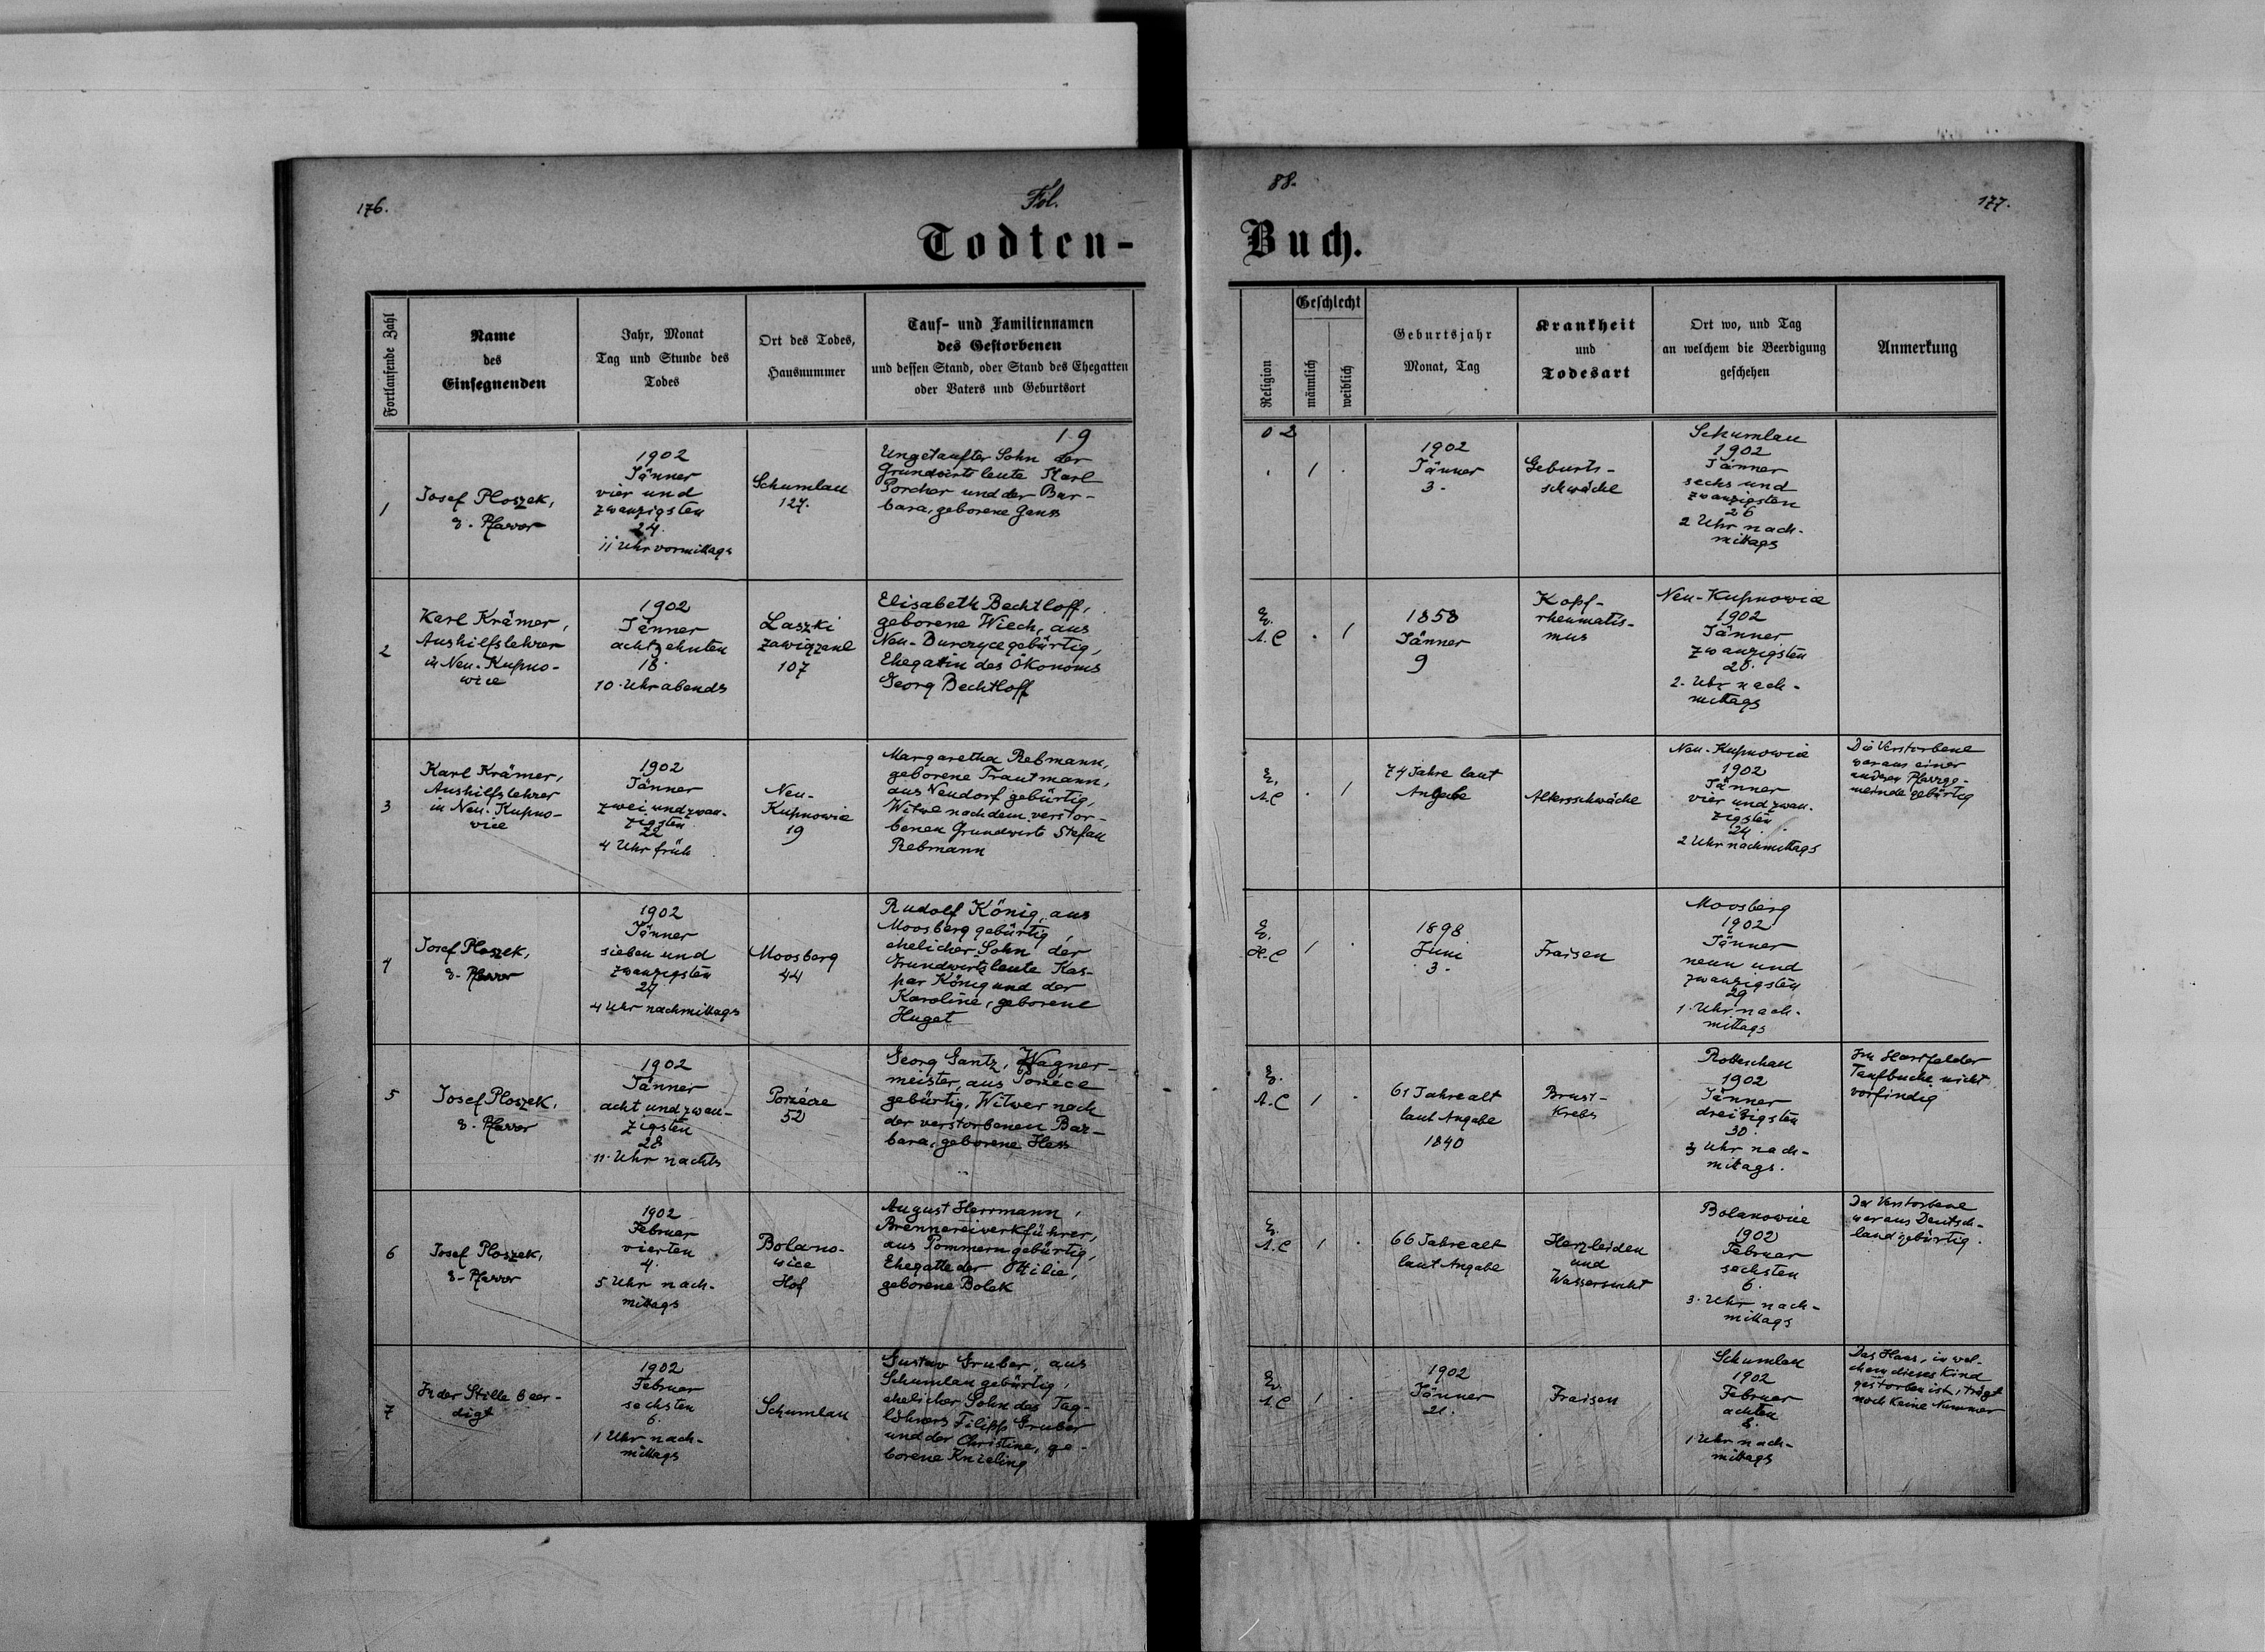 176.
Fol.
88.
177.
Todten-
Buch.
Fortlaufende Zahl
Name
des
Einsegnenden
Jahr, Monat
Tag und Stunde des
Todes
Ort des Todes,
Hausnummer
Tauf- und Familiennamen
des Gestorbenen
und dessen Stand, oder Stand des Ehegatten
oder Vaters und Geburtsort
Religion
Geschlecht
männlich
weiblich
Geburtsjahr
Monat, Tag
Krankheit
und
Todesart
Ort wo, und Tag
an welchem die Beerdigung
geschehen
Anmerkung
19
02
1
Josef Ploszek,
e. Pfarrer
1902
Jänner
vier und
zwanzigsten
24.
11 Uhr vormittags
Schumlau
127.
Ungetaufter Sohn der
Grundwirtsleute Karl
Porcher und der Bar-
bara, geborene Ganss
. 1 .
1902
Jänner
3.
Geburts-
schwäche
Schumlau
1902
Jänner
sechs und
zwanzigsten
26
2 Uhr nach-
mittags
2
Karl Krämer,
Aushilfslehrer
in Neu-Kupno-
wice
1902
Jänner
achtzehnten
18.
10. Uhr abends
Laszki
zawiązane
107
Elisabeth Bechtloff,
geborene Wiech, aus
Neu-Burczyce gebürtig,
Ehegatin des Ökonoms
Georg Bechtloff
E.
A. C . 1
1858
Jänner
9
Kopf-
rheumatis-
mus
Neu-Kupnowice
1902
Jänner
zwanzigsten
20.
2. Uhr nach-
mittags
3
Karl Krämer,
Aushilfslehrer
in Neu-Kupno-
wice
1902
Jänner
zwei und zwan-
zigsten
22
4 Uhr früh
Neu-
Kupnowice
19
Margaretha Rebmann,
geborene Trautmann,
aus Neudorf gebürtig,
Witwe nach dem verstor-
benen Grundwirte Stefan
Rebmann
E.
A. C . 1
74 Jahre laut
Angabe
Altersschwäche
Neu-Kupnowice
1902
Jänner
vier und zwan-
zigsten
24.
2 Uhr nachmittags
Die Verstorbene
war aus einer
anderen Pfarrge-
meinde gebürtig
4
Josef Ploszek,
e. Pfarrer
1902
Jänner
sieben und
zwanzigsten
27
4 Uhr nachmittags
Moosberg
44
Rudolf König, aus
Moosberg gebürtig,
ehelicher Sohn der
Grundwirtsleute Kas-
par König und der
Karoline, geborene
Huget
E.
H. C 1 .
1898
Juni
3.
Fraisen
Moosberg
1902
Jänner
neun und
zwanzigsten
29
1. Uhr nach-
mittags
5
Josef Ploszek,
e. Pfarrer
1902
Jänner
acht und zwan-
zigsten
28
11. Uhr nachts
Porzécze
52
Georg Gantz, Wagner-
meister, aus
gebürtig, Witwer nach
der verstorbenen Bar-
bara, geborene Hess
E.
A. C 1 .
61 Jahre alt
laut Angabe
1840
Brust-
krebs
Rottenhan
1902
Jänner
dreißigsten
30.
3 Uhr nach-
mittags.
Im Hartfelder
Taufbuche nicht
vorfindig
6
Josef Ploszek,
e. Pfarrer
1902
Februar
vierten
4.
5 Uhr nach-
mittags
Bolano-
wice
Hof
August Herrmann,
Brennereiwerkführer,
aus Pommern gebürtig,
Ehegatte der Ottilie,
geborene Bolek
E.
A. C 1 .
66 Jahre alt
laut Angabe
Herzleiden
und
Wassersucht
Bolanowice
1902
Februar
sechsten
6.
3. Uhr nach-
mittags
Der Verstorbene
war aus Deutsch-
land gebürtig.
7
In der Stille beer-
digt
1902
Februar
sechsten
6.
1 Uhr nach-
mittags
Schumlau
Gustav Gruber, aus
Schumlau gebürtig,
ehelicher Sohn des Tag-
löhners Filipp Gruber
und der Christine, ge-
borene Knieling
E.
A. C 1 .
1902
Jänner
21.
Fraisen
Schumlau
1902
Februar
achten
8.
1 Uhr nach-
mittags
Das Haus, in wel-
chem dieses Kind
gestorben ist, trägt
noch keine Nummer